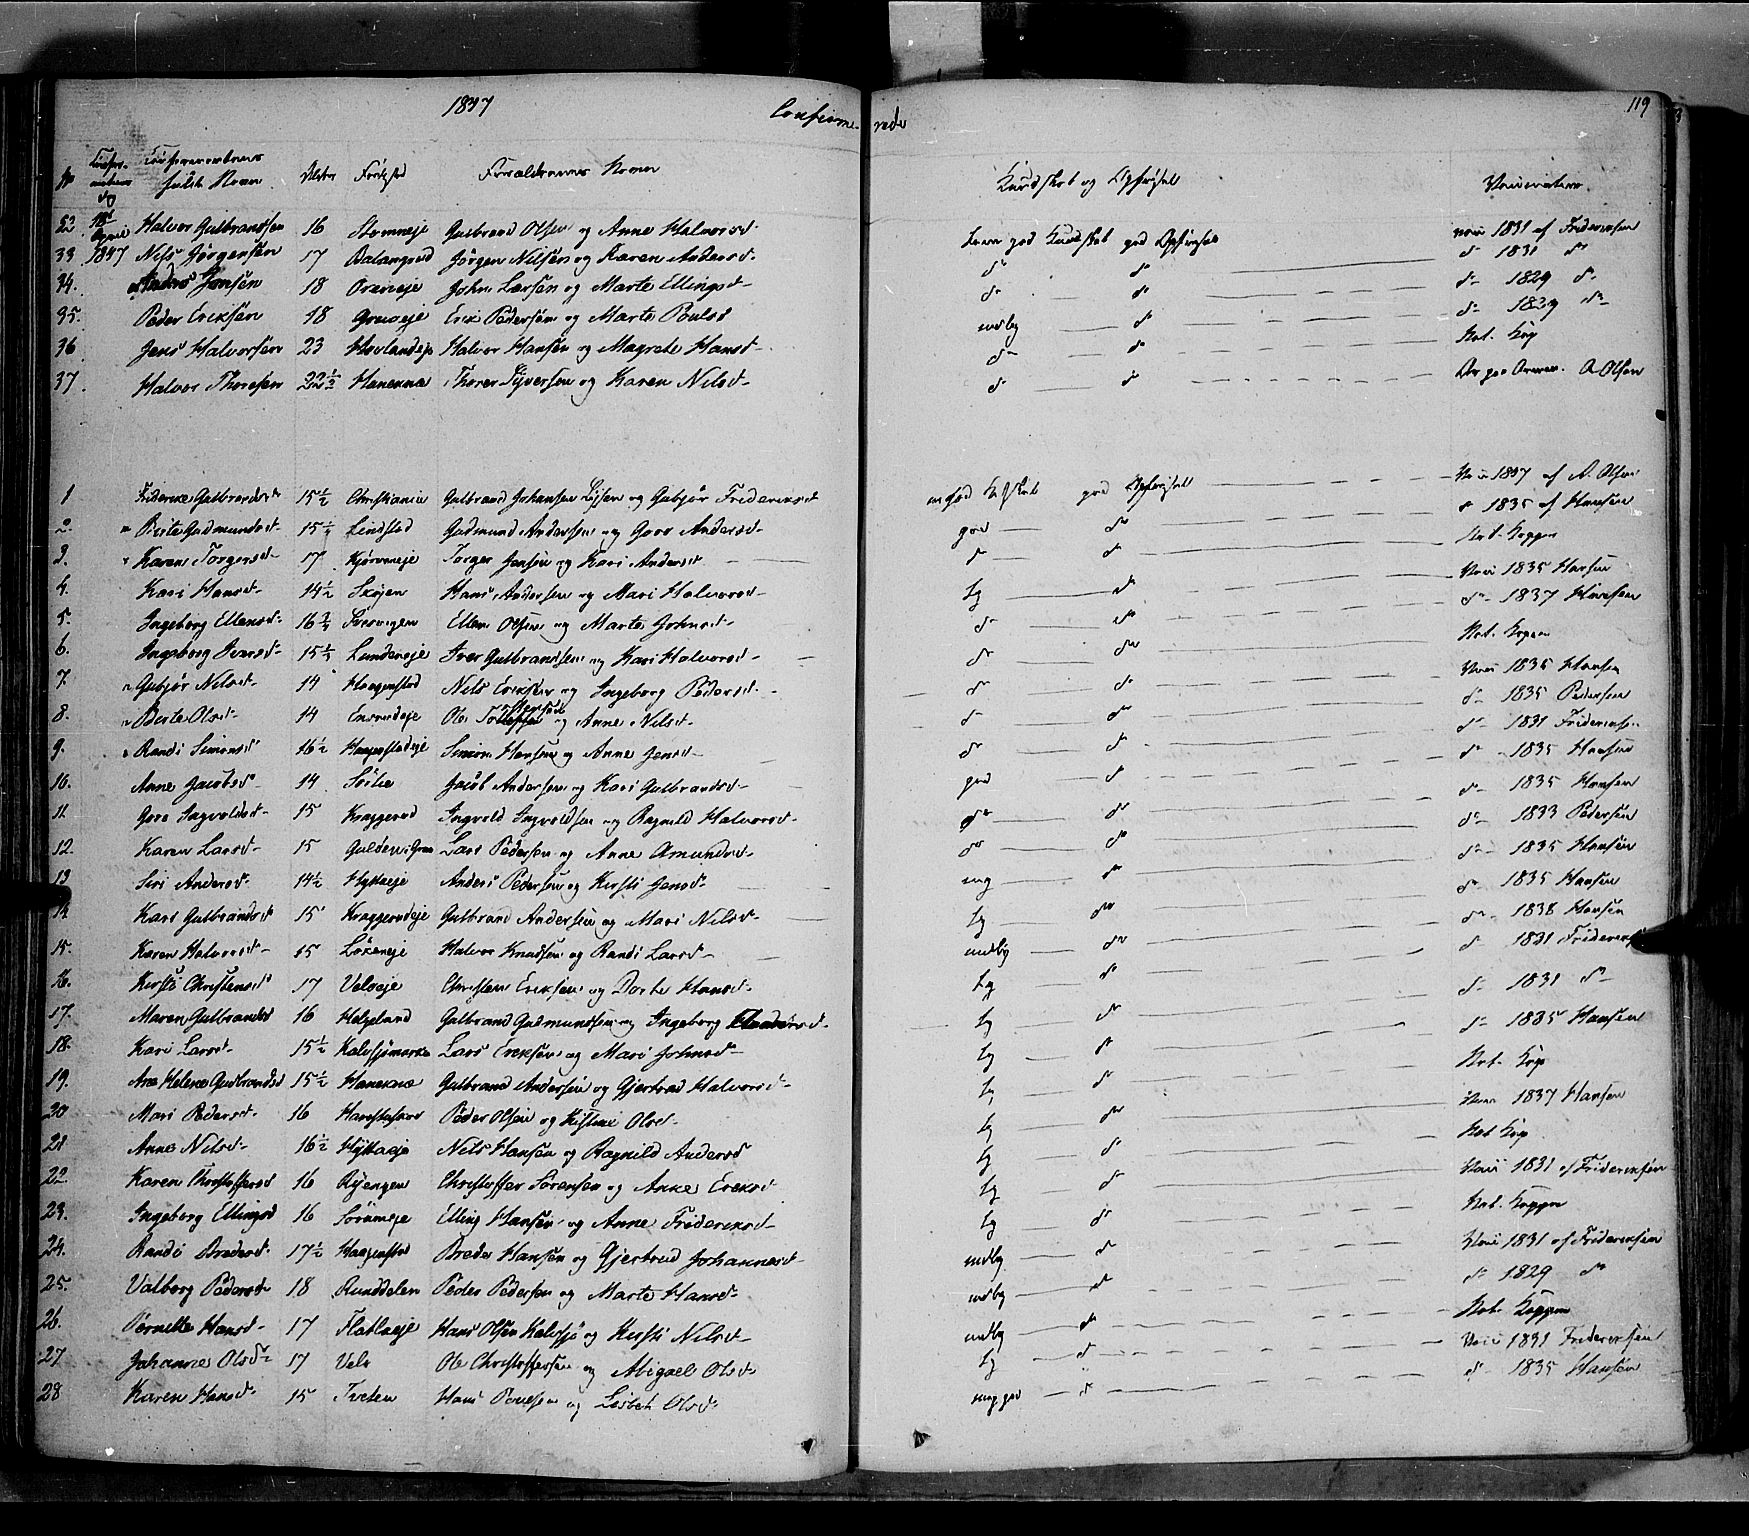 1837 Confirme- rede 119
No Confirmationens Dag Confirmandernes fulde Navn Alder Födested Foreldrenes Navne Kundskab og Opförsel Vaccination
32 18d April 1837 Halvor Gulbrandsen 16 Gulbrand Olsen og Anne Halvorsd. god Kundskab god Opförsel vacc 1831 af Fridericksen
33 Nils Jörgensen 17 Dalangrud Jörgen Nilsen og Karen Andersd. do do d 1831 do
34. Anders Jonsen 18 John Larsen og Marte Ellingsd do do do 1829 do
35. Peder Eriksen 18 Erik Pedersen og Marte Poulsd mdlg do do 1829 do
36 Jens Halvorsen 23 Hovlandeje Halvor Hansen og Magrete Hansd do do Nat. Kop
37 Halvor Thoresen 22½ Haneknæ Thorer Syversen og Karen Nilsd do do A Olsen
1 15½ Christiania Gulbrand Johansen og Gubjör Fridericksd god Opförsel Vacc 1837 af A. Olsen
2. Berte Gudmundsd 15½ Lindstad Gudmund Andersen og Goro Andersd. god do d 1835 af Hansen
3. Karen Torgersd 17 Torger Jonsen og Kari Andersd d do Nat. Kopper
4. Kari Hansd 14½ Sköyen Hans Andersen og Mari Halvorsd Tg do Vacc 1835 Hansen
5. Ingeborg Ellensd. Ellen Olsen og Marte Johnsd do do do 1837 Hansen
6. Ingeborg Iversd 15½ Lundeneje Iver Gulbrandsen og Kari Halvorsd do do Nat. Kopper
7. Gubjör Nilsd 14 Haagenstad Nils Eriksen og Ingeborg Pedersd. do do Vacc 1835 Hansen
8. Berte Olsd 14 Ole og Anne Nilsd do do do 1835 Pedersen
9. Randi Simonsd 16½ Haagenstadeje Simon Hansen og Anne Jensd do do do 1831 Fridericksen
10. Anne Jacobsd 14 Jacob Andersen og Kari Gulbrandsd god do do 1835 Hansen
11 Goro Ingvoldsd 15 Kraggerud Ingvold Ingvoldsen og Ragnild Halvorsd do do do 1835 Hansen
12. Karen Larsd 15 Lars Pedersen og Anne Amundsd do do do 1833 Pedersen
13 Siri Andersd 14½ Hyttaeje Anders Pedersen og Kirsti Jensd. mg do do 1835 Hansen
14 Kari Gulbrandsd 15 Kraggerudeje Gulbrand Andersen og Mari Nilsd Tg do do 1835 Hansen
15. Karen Halvorsd 15 Lökeneje Halvor Knudsen og Randi Larsd mdlg do do 1838 Hansen
16. Kirsti Christensd 17 Veloeje Christen Eriksen og Dorte Hansd. Tg do d 1831 Fridericks
17. Maren Gulbrandsd 16 Helgeland Gulbrand Gudmundsen og Ingeborg Tg do d 1831 do
18. Kari Larsd 15½ Kalvsjömarke Lars Eriksen og Mari Johnsd Tg do do 1835 Hansen
19. Ane Helene Gudbrandsd 15½ Haneknæ Gulbrand Andersen og Gjertrud Halvorsd Tg do Nat. Kop
20 Mari Pedersd. 16 Peder Olsen og Kistine Olsd. Tg do Vacc 1837 Hansen
21 Anne Nilsd 16½ Hyttaeje Nils Hansen og Ragnild Andersd Tg do Nat Kop
22 Karen Christoffersd 16 Ryengen Christoffer Sörensen og Anne Eriksd Tg do Vacc 1831 af Fridericksen
23. Ingeborg Ellingsd 16 Sörumeje Elling Hansen og Anne Fridericksd Tg do Nat. Kopper
24. Randi Bredesd. 17½ Haagenstad Brede Hansen og Gjertrud Johannesd mdlg do Vacc 1831 af Fridericksen
25. Valborg Pedersd 18 Runddelen Peder Pedersen og Marte Hansd mdlg do do 1829 do
26. Pernille Hansd 17 Flatlaeje Hans Olsen Kalvsjö og Kirsti Nilsd mdlg do Nat. Kopper
27 Johanne Olsd 17 Velo Ole Christoffersen og Abigael Olsd Tg do Vacc 1831 Fridericksen
28 Karen Hansd 15 Tveten Hans og Lisbeth Olsd meg god do do 1835 Hansen